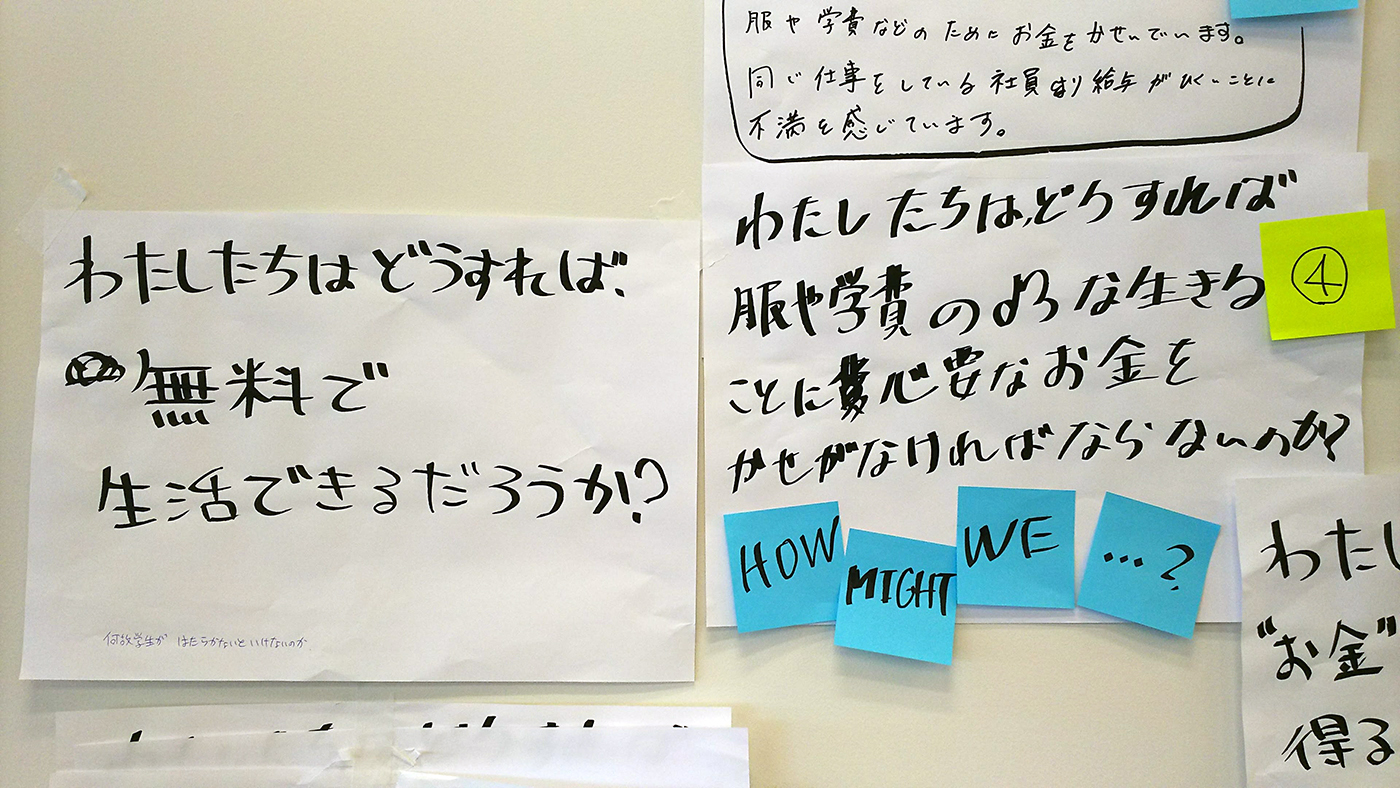 服や学費などのためにお金をかせいでいます。
同じ仕事をしている社員より給与がひくいことに
不満を感じています。
わたしたちはどうすれば、
無料で
生活できるだろうか?
何故学生が はたらかないといけないのか
わたしたちは、どうすれば
服や学費のような生きる
ことに必要なお金を
かせがなければならないのか?
④
HOW
MIGHT
WE
...?
わたし
"お金"
得る